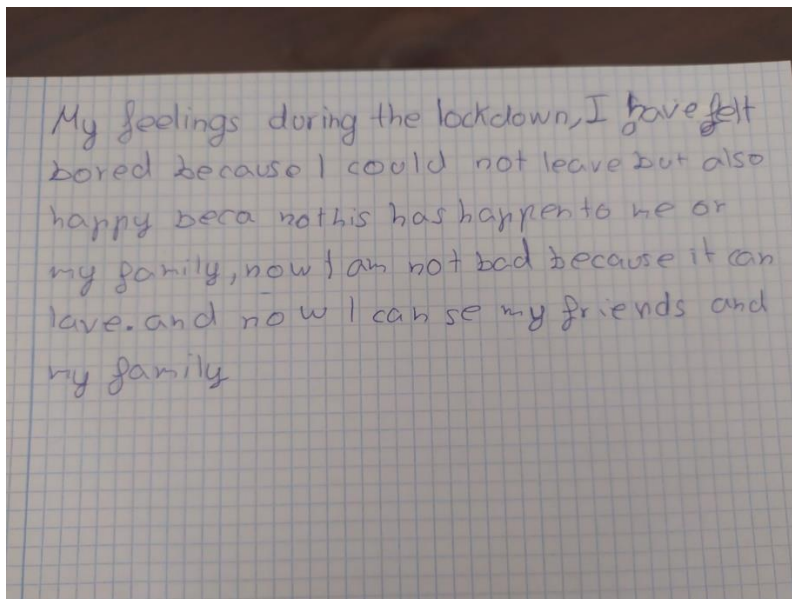 My feelings during the lockdown, I have felt
bored because I could not leave but also
happy beca nothis has happen to me or
my family, now I am not bad because it can
lave. and now I can se my friends and
my family